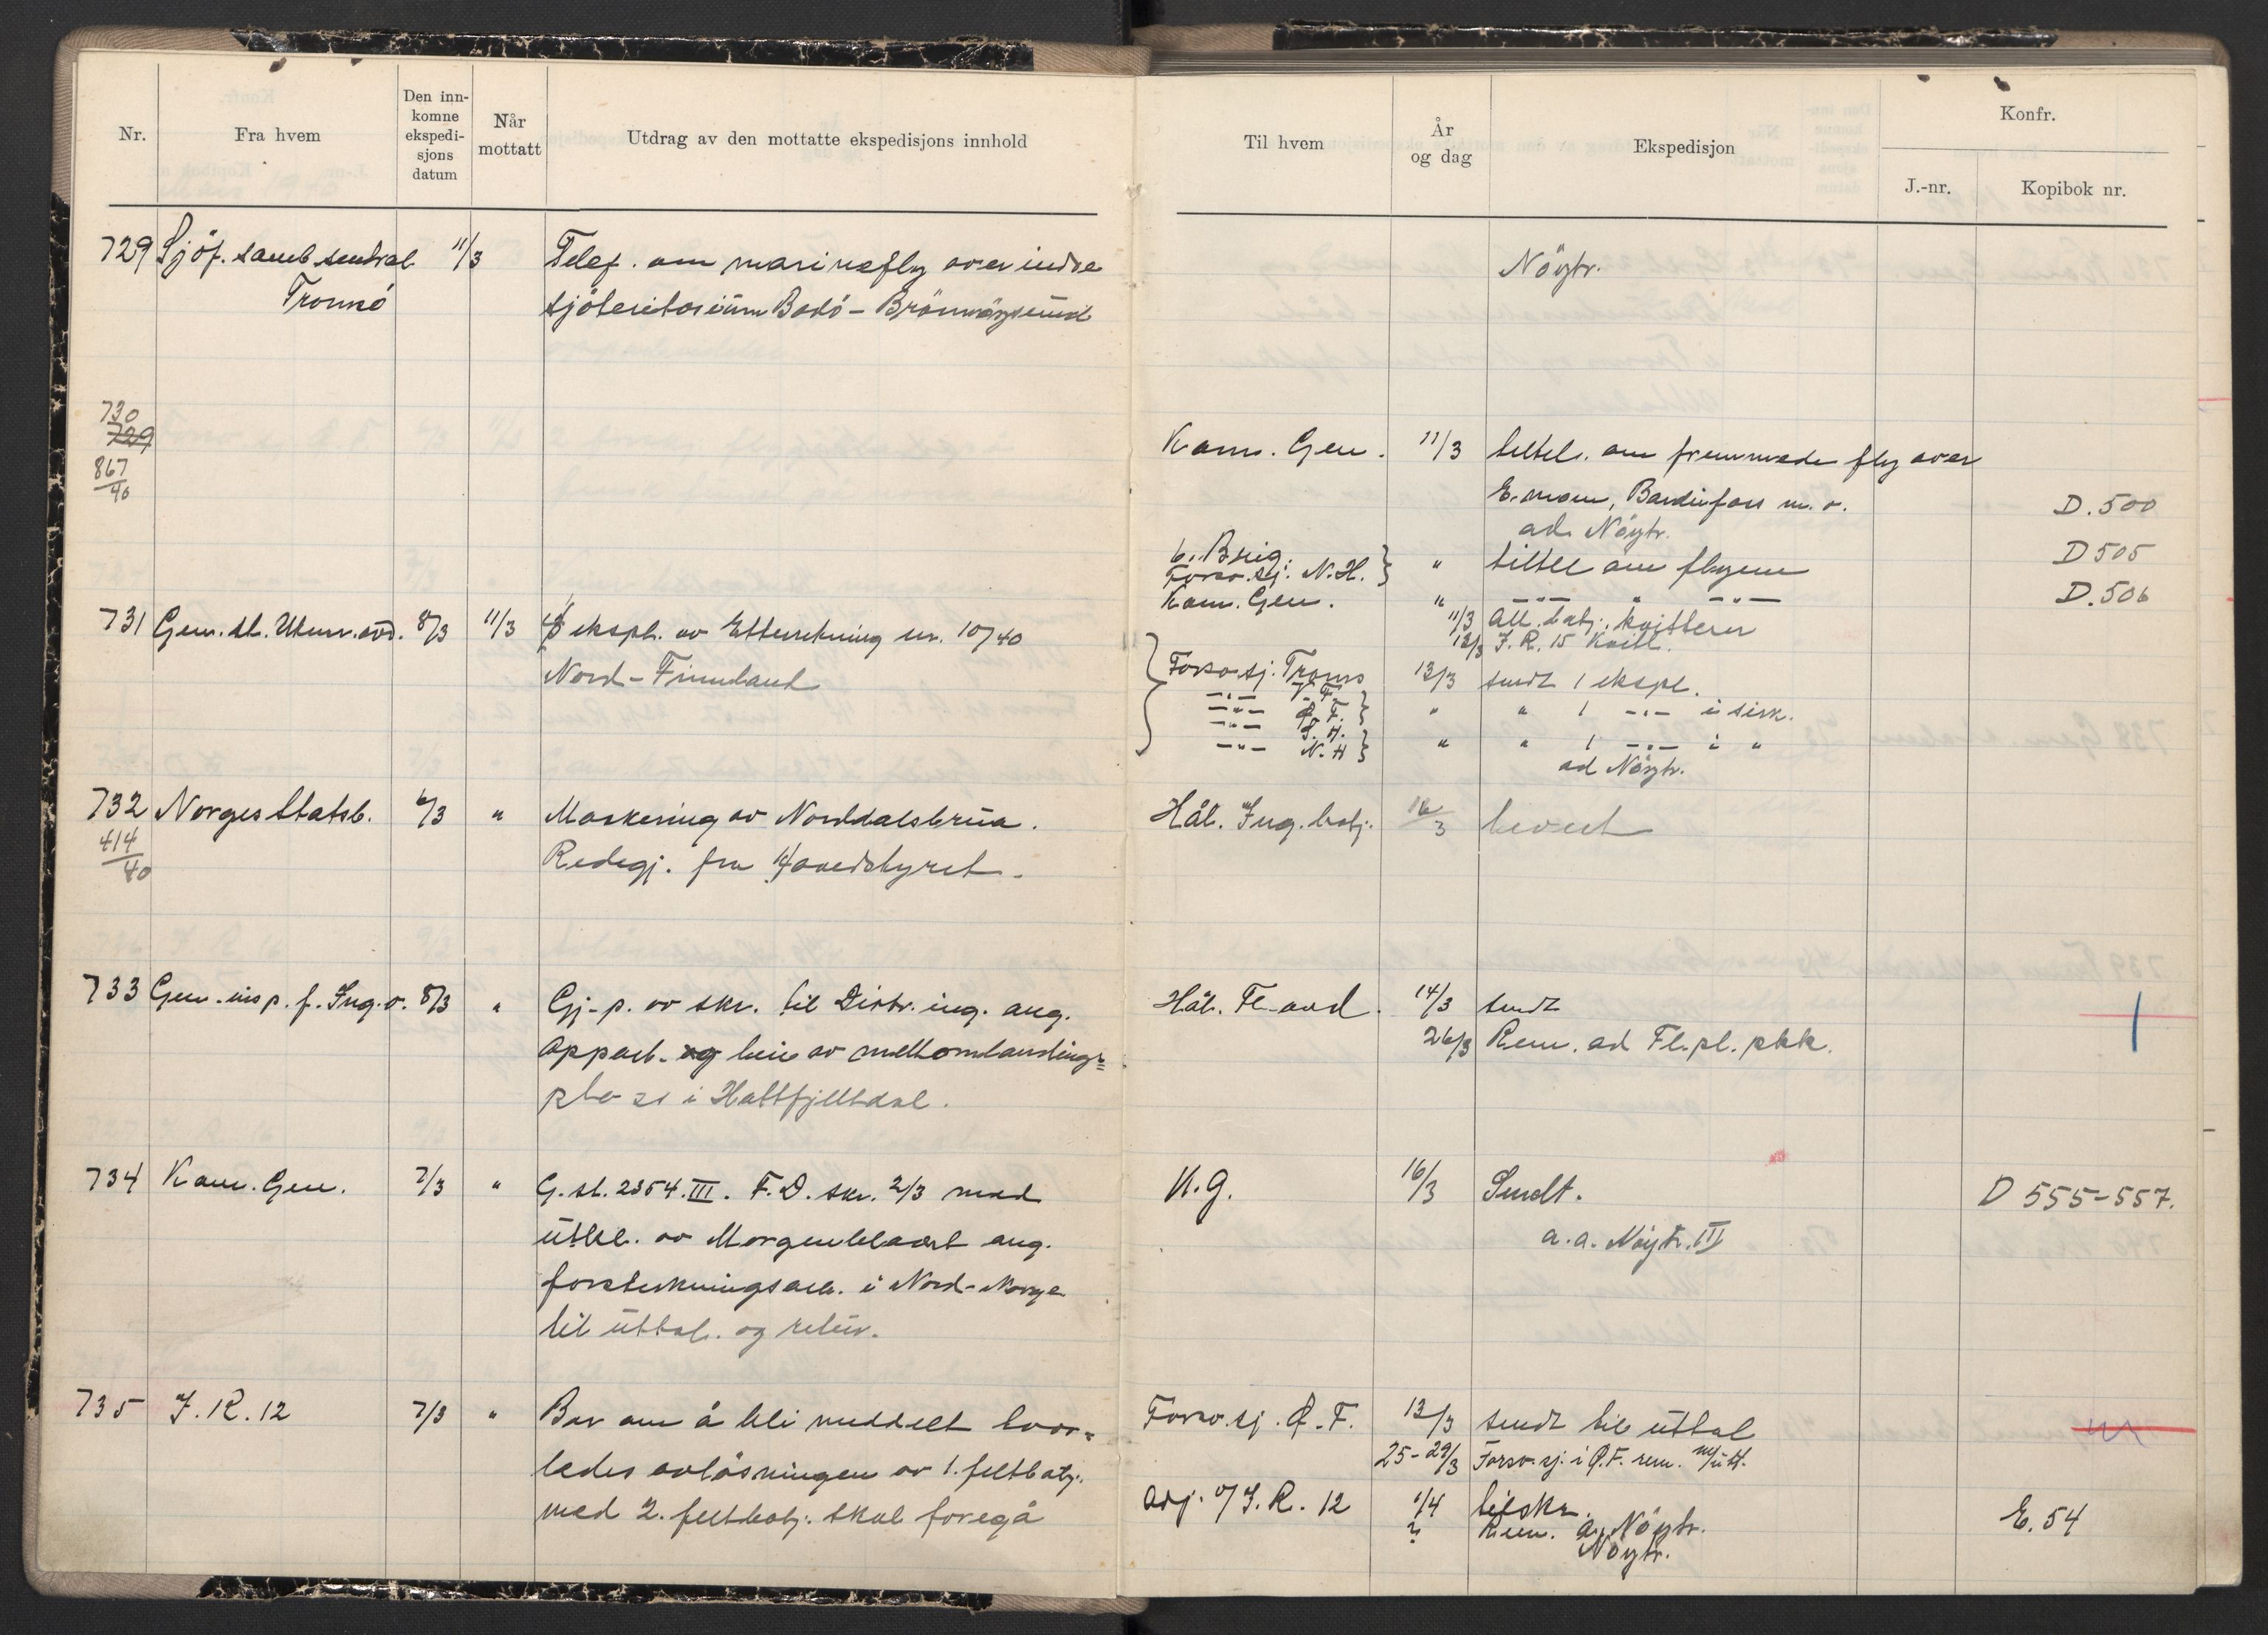 Nr.
Fra hvem
Den inn-
komne
ekspedi-
sjons
datum
Når
mottatt
Utdrag av den mottatte ekspedisjons innhold
Til hvem
År
og dag
Ekspedisjon
Konfr.
J.-nr.
Kopibok nr.
729 Sjöf. samb. sentral 11/3 Telef. om marinefly over indre
Nöytr.
Tromsö
sjöteritorium Bodö - Brönnöysund
730
729
867/40
Kom. Gen. 11/3 tiltel. om fremmede fly over
E.moen, Bardufoss m. v. D. 500
ad. Nöytr.
6. Brig.
Forsv. sj. N. H. } " tiltel om flyene D 505
Kom. Gen. " -"- " -"- D. 506
731 Gen. st. Utenr. avd. 8/3 11/3 ekspl. av Etterretning nr. 10/40
Nord-Finnland
11/3 Alt. batj. kvitterer
12/3 I. R. 15 Kvitt.
Forsv. sj. Troms 13/3 sendt 1 ekspl.
-"- V. F.
-"- Ø. F. } " " 1 -"- i sirk.
-"- S. H.
-"- N. H } " " 1 -"- i "
ad Nöytr.
732 Norges Statsb. 6/3 " Maskering av Norddalsbrua.
414/40
Redegj. fra Hovedstyret.
Hål. Ing. batj. 16/3 levert
733 Gen. insp. f. Ing. v. 8/3 " Gj-p. av skr. til Distr. ing. ang.
opparb. og leie av mellomlandings=
plass i Hattfjelldal.
Hål. Fl. avd. 14/3 sendt
26/3 Rem. ad Fl. pl. pkk.
734 Kom. Gen. 7/3 " G. st. 2354. III. F. D. skr. 2/3 med
utkl. av Morgenbladet ang.
forsterkningsarb. i Nord-Norge
til uttal. og retur.
K. G. 16/3 Sendt. D 555-557.
a. a. Nöytr. III
735 I. R. 12 7/3 " Ber om å bli meddelt hvor=
ledes avlösningen av 1. feltbatj.
med 2. feltbatj. skal foregå
Forsv. sj. Ø. F. 13/3 sendt til uttal
25-29/3 Forsv. sj. i Ø. F. rem. m/utt.
Adj. v/ I. R. 12 1/4 tilskr. E. 54
? Rem. a, Nöytr.
Nöytr.